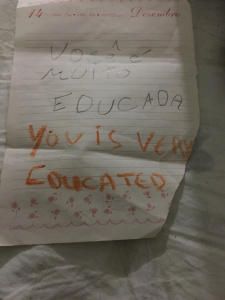 14 Dezembro
VOCÊ É
MUITO
EDUCADA
YOU IS VERY
EDUCATED